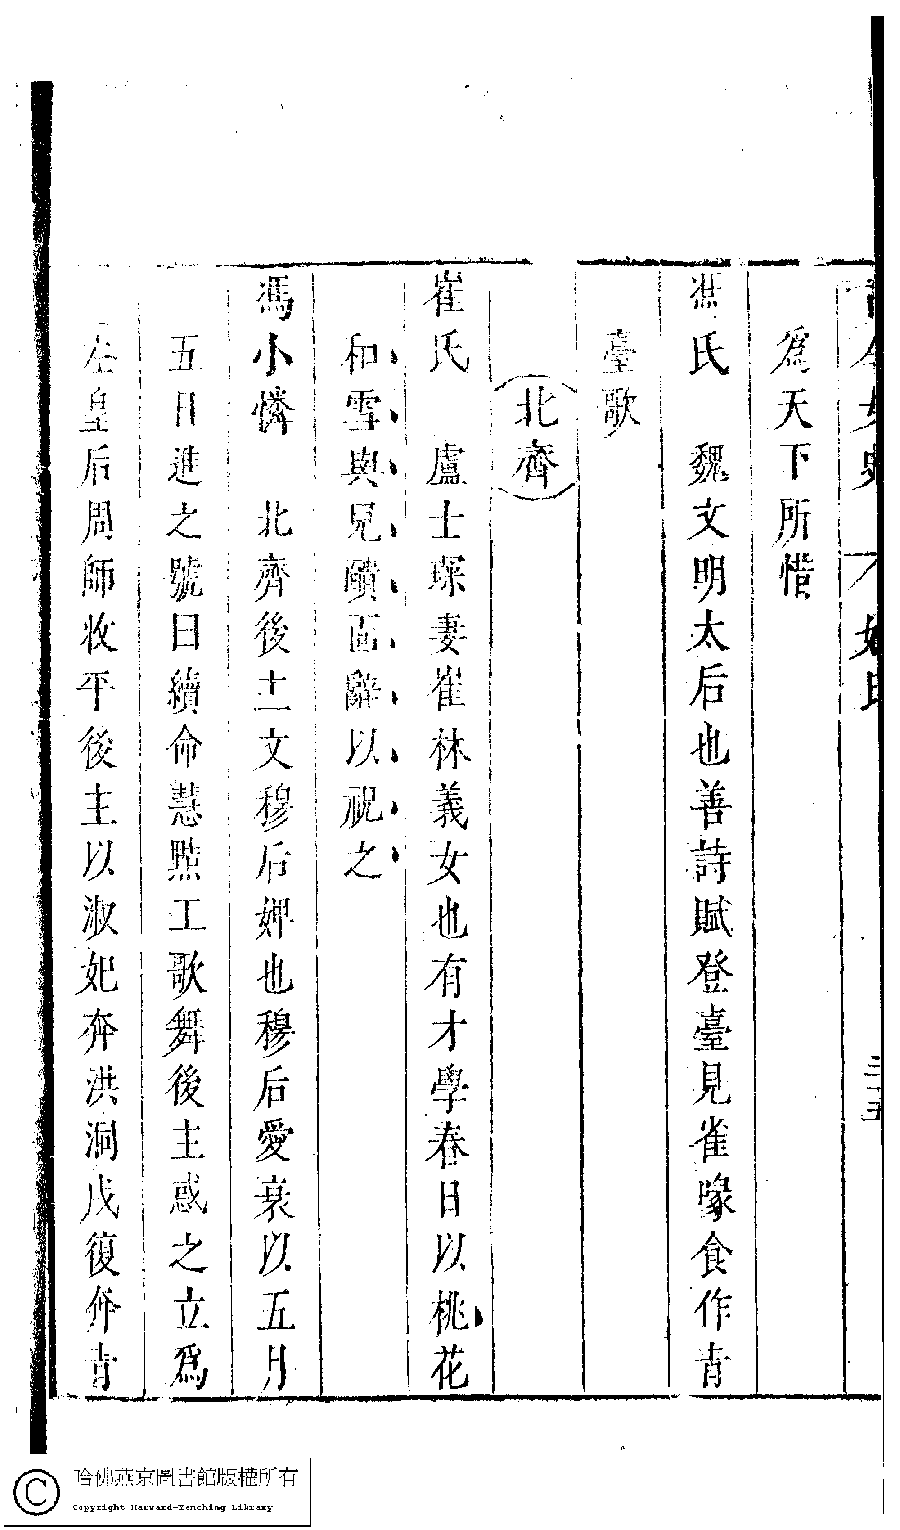 古今女史 姓氏 三十五
為天下所惜
馮氏 魏文明太后也善詩賦登臺見雀喙食作青
臺歌
北齊
崔氏 盧士琛妻崔林義女也有才學春日以桃花
和雪與兒靧面辭以祝之
馮小憐 北齊後主文穆后婢也穆后愛衰以五月
五日進之號曰續命慧黠工歌舞後主惑之立為
左皇后周師收平後主以淑妃奔洪洞戍復奔青
哈佛燕京圖書館版權所有
Copyright Harvard-Yenching Library